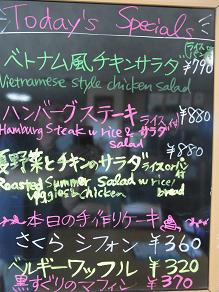 Today's Specials
ベトナム風チキンサラダ ライスorパン付 ¥790
Vietnamese style chicken salad
ハンバーグステーキ ライス ¥880
Hamburg Steak w rice & サラダ
salad
夏野菜とチキンのサラダ ライスorパン付 ¥880
Roasted Summer Salad w rice/
veggies & chicken bread
本日の手作りケーキ
さくらシフォン ¥360
ベルギーワッフル ¥320
黒すぐりのマフィン ¥370